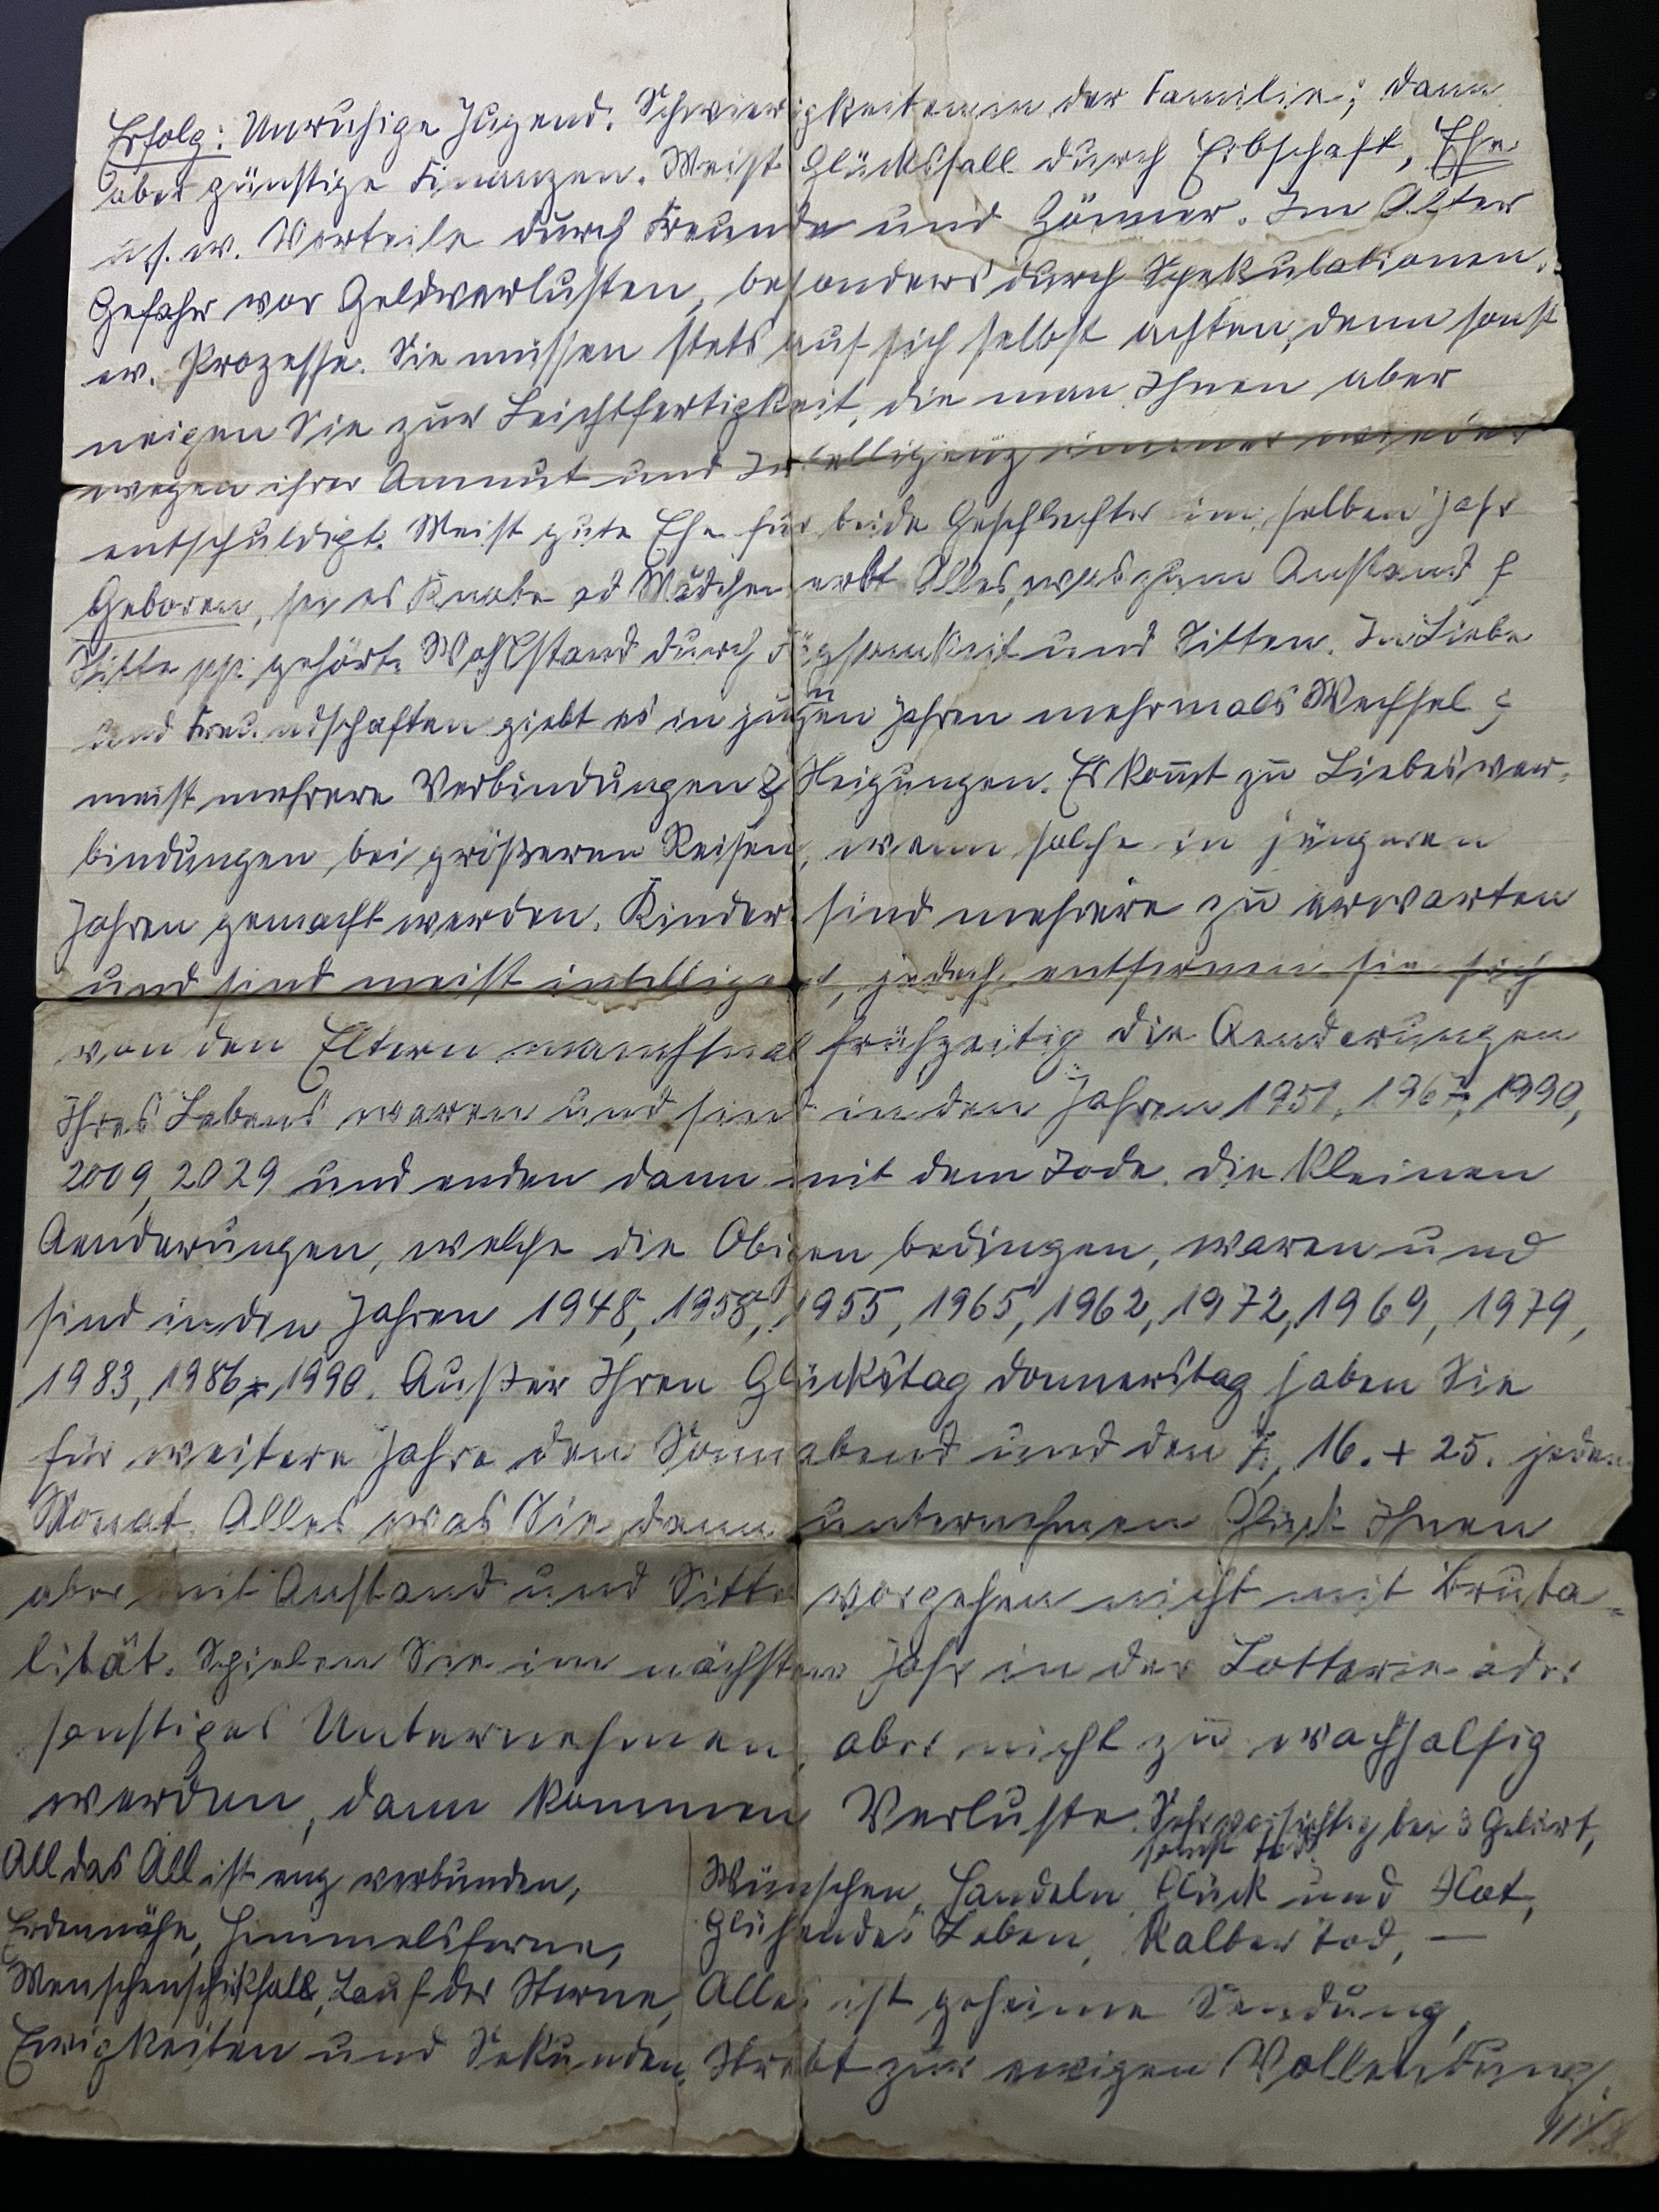 Erfolg: Unruhige Jugend. Schwierigkeiten in der Familie; dann
aber günstige Finanzen. Meist Glücksfall durch Erbschaft, Ehe
u.s.w. Vorteile durch Freunde und Gönner. Im Alter
Gefahr vor Geldverlusten, besonders durch Spekulationen.
ev. Prozesse. Sie müssen stets auf sich selbst achten, denn sonst
neigen Sie zur Leichtfertigkeit, die man Ihnen aber
wegen ihrer Anmut und Intelligenz immer wieder
entschuldigt. Meist gute Ehe für beide Geschlechter im selben Jahr
Geboren, sei es Knabe od Mädchen erbt Alles, was zum Anstand &
Sitte pp. gehört. Wohlstand durch Fügsamkeit und Sitten. In Liebe
und Freundschaften giebt es in jungen Jahren mehrmals Wechsel &
meist mehrere Verbindungen & Neigungen. Es kom̄t zu Liebesver-
bindungen bei größeren Reisen, wenn solche in jüngeren
Jahren gemacht werden. Kinder sind mehrere zu erwarten
und sind meist intelligent, jedoch entfernen sie sich
von den Eltern manchmal frühzeitig die Aenderungen
Ihres Lebens waren und sind in den Jahren 1951, 1967, 1990,
2009, 2029 und enden dann mit dem Tode. die Kleinen
Aenderungen, welche die Obigen bedingen, waren und
sind in den Jahren 1948, 1958, 1955, 1965, 1962, 1972, 1969, 1979,
1983, 1986, 1990. Außer Ihren Glückstag donnerstag haben Sie
für weitere Jahre den Sonnabend und den 7., 16. + 25. jeden
Monat. Alles was Sie dann unternehmen Glückt Ihnen
aber mit Anstand und Sitte vorgehen nicht mit Bruta=
lität. Spielen Sie im nächsten Jahr in der Lotterie oder
sonstiges Unternehmen, aber nicht zu waghalsig
werden, dann kommen Verluste. Sehr vorsichtig bei 3 Geburt,
sonst Tod.
All das All ist eng verbunden,
Erdennähe, Himmelsferne,
Menschenschicksall, Lauf der Sterne,
Ewigkeiten und Sekunden.
Wünschen, Handeln, Glück und Not,
Glühendes Leben, Kalter tod, —
Alles ist geheime Sendung,
Strebt zur ewigen Vollendung.